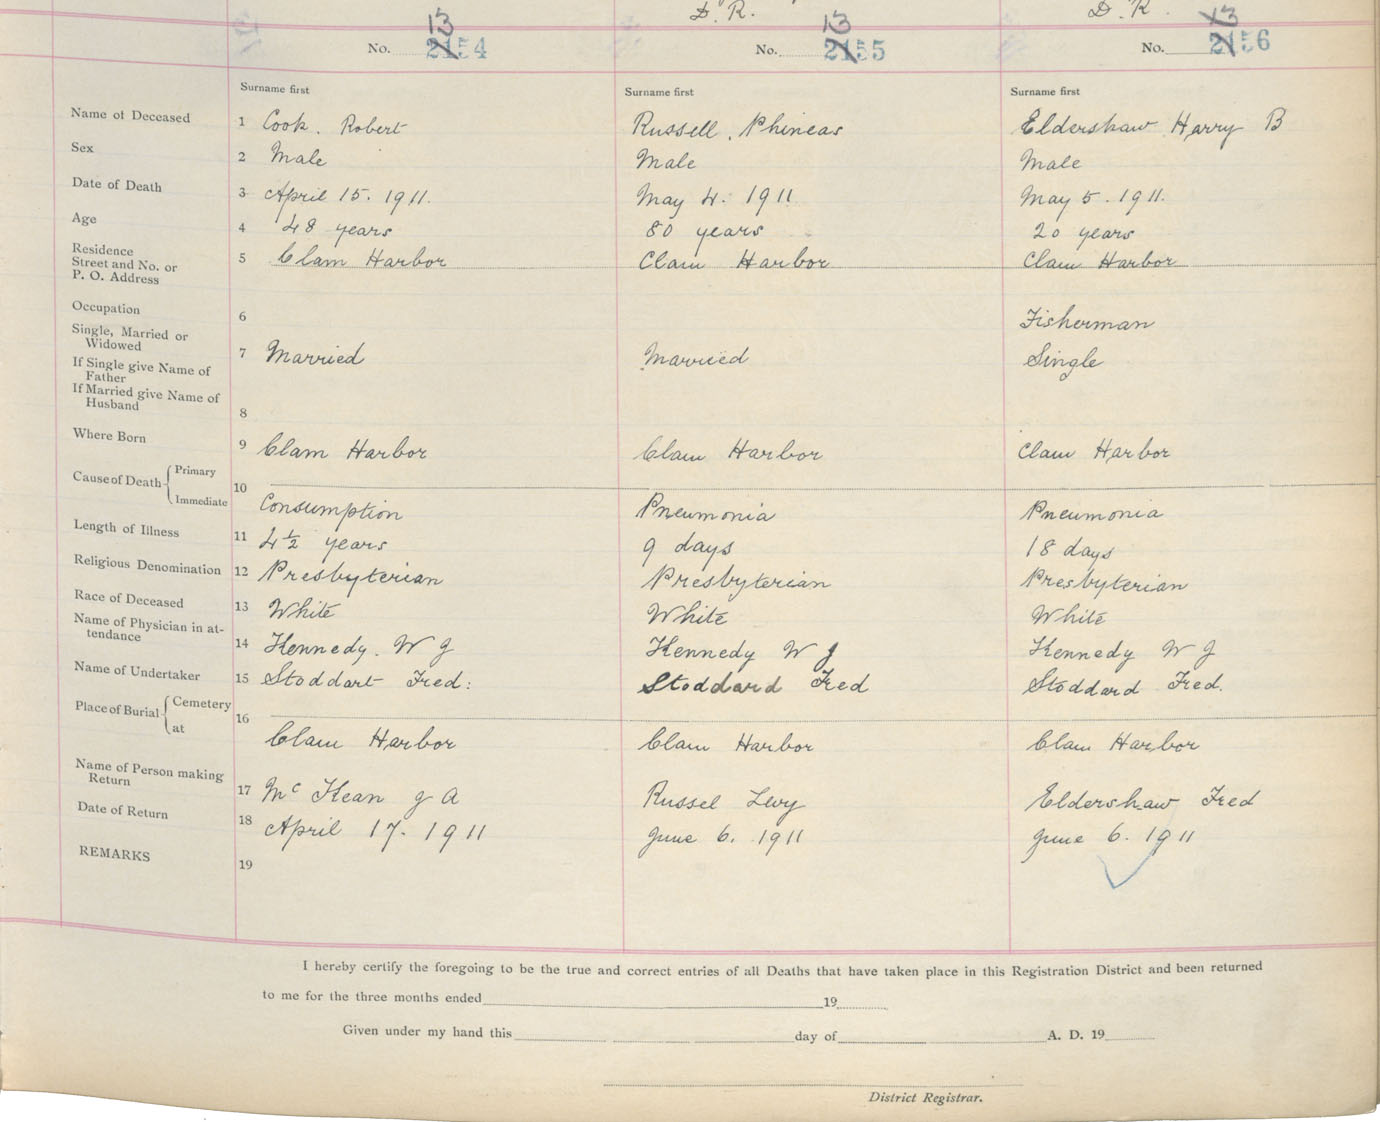 D. R. D. R.
13 13 13
No. 2154 No. 2155 No. 2156
Surname first Surname first Surname first
Name of Deceased 1 Cook. Robert Russell. Phineas Eldershaw Harry B
Sex 2 Male Male Male
Date of Death 3 April 15. 1911. May 4. 1911 May 5. 1911.
Age 4 48 years 80 years 20 years
Residence
Street and No. or 5 Clam Harbor Clam Harbor Clam Harbor
P. O. Address
Occupation 6 Fisherman
Single, Married or
Widowed 7 Married Married Single
If Single give Name of
Father
If Married give Name of
Husband 8
Where Born 9 Clam Harbor Clam Harbor Clam Harbor
Cause of Death Primary
10
Immediate Consumption Pneumonia Pneumonia
Length of Illness 11 4½ years 9 days 18 days
Religious Denomination 12 Presbyterian Presbyterian Presbyterian
Race of Deceased 13 White White White
Name of Physician in at-
tendance 14 Kennedy. W J Kennedy W J Kennedy W J
Name of Undertaker 15 Stoddart Fred: Stoddard Fred Stoddard Fred.
Place of Burial Cemetery
16
at Clam Harbor Clam Harbor Clam Harbor
Name of Person making
Return 17 Mc Kean J A Russel Levy Eldershaw Fred
Date of Return 18 April 17. 1911 June 6. 1911 June 6. 1911
REMARKS 19
I hereby certify the foregoing to be the true and correct entries of all Deaths that have taken place in this Registration District and been returned
to me for the three months ended 19
Given under my hand this day of A. D. 19
District Registrar.